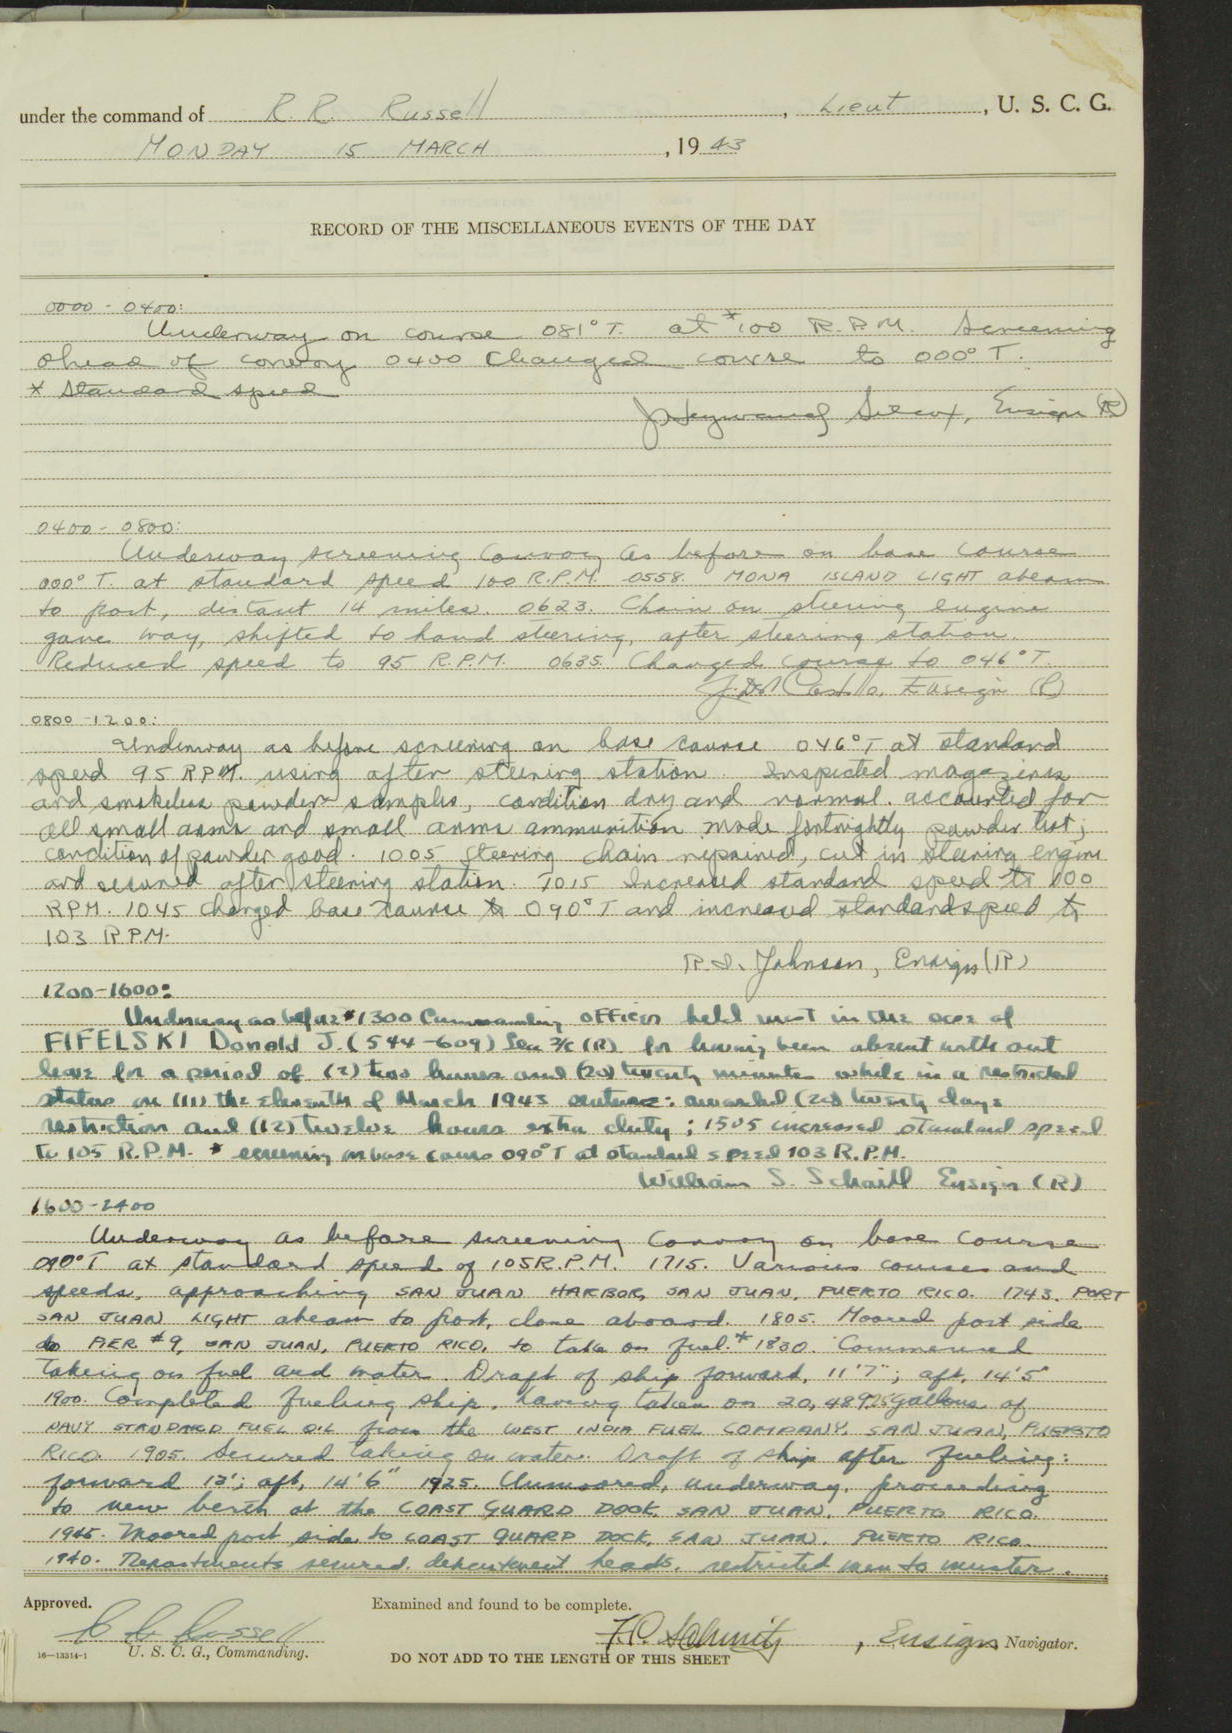 under the command of R. R. Russell, Lieut, U. S. C. G.
MONDAY 15 MARCH, 1943
RECORD OF THE MISCELLANEOUS EVENTS OF THE DAY
0000 - 0400:
Underway on course 081° T. at *100 R.P.M. Screening
ahead of convoy 0400 Changed course to 000° T.
* Standard speed
J. Heyward Silcox, Ensign (R)
0400 - 0800:
Underway screening convoy as before on base course
000° T. at standard speed 100 R.P.M. 0558. MONA ISLAND LIGHT abeam
to port, distant 14 miles. 0623. Chain on steering engine
gave way, shifted to hand steering, after steering station.
Reduced speed to 95 R.P.M. 0635. Changed course to 046° T.
Ensign (R)
0800 - 1200:
Underway as before screening on base course 046° T at standard
speed 95 RPM. using after steering station. Inspected magazines
and smokeless powder samples, condition dry and normal. accounted for
all small arms and small arms ammunition made fortnightly powder test;
condition of powder good. 1005 Steering chain repaired, cut in steering engine
and secured after steering station. 1015 Increased standard speed to 100
RPM. 1045 changed base course to 090° T and increased standard speed to
103 R.P.M.
R. I. Johnson, Ensign (R)
1200-1600:
Underway as before * 1300 Commanding officer held mast in the case of
FIFELSKI Donald J. (544-609) Sea 2/c (R) for having been absent without
leave for a period of (2) two hours and (20) twenty minutes while in a restricted
status on (11) the eleventh of March 1943 sentence: awarded (20) twenty days
restriction and (12) twelve hours extra duty; 1505 increased standard speed
to 105 R.P.M. * screening on base course 090° T at standard speed 103 R.P.M.
William S. Schaill Ensign (R)
1600-2400
Underway as before screening convoy on base course
090° T at standard speed of 105 R.P.M. 1715. Various courses and
speeds, approaching SAN JUAN HARBOR, SAN JUAN, PUERTO RICO. 1743. PORT
SAN JUAN LIGHT abeam to port, close aboard. 1805. Moored port side
to PIER #9, SAN JUAN, PUERTO RICO, to take on fuel. * 1830. Commenced
taking on fuel and water. Draft of ship forward, 11'7"; aft, 14'5"
1900. Completed fueling ship, having taken on 20,489 gallons of
NAVY STANDARD FUEL OIL from the WEST INDIA FUEL COMPANY, SAN JUAN, PUERTO
RICO. 1905. Secured taking on water. Draft of ship after fueling:
forward 12'; aft, 14'6" 1925. Unmoored, underway, proceeding
to new berth at the COAST GUARD DOCK, SAN JUAN, PUERTO RICO.
Moored port side to COAST GUARD DOCK, SAN JUAN, PUERTO RICO.
Departments secured. department heads, restricted men to muster.
Approved.
Examined and found to be complete.
R. R. Russell
U. S. C. G., Commanding.
F.P. Schmitz, Ensign Navigator.
16—13314-1
DO NOT ADD TO THE LENGTH OF THIS SHEET